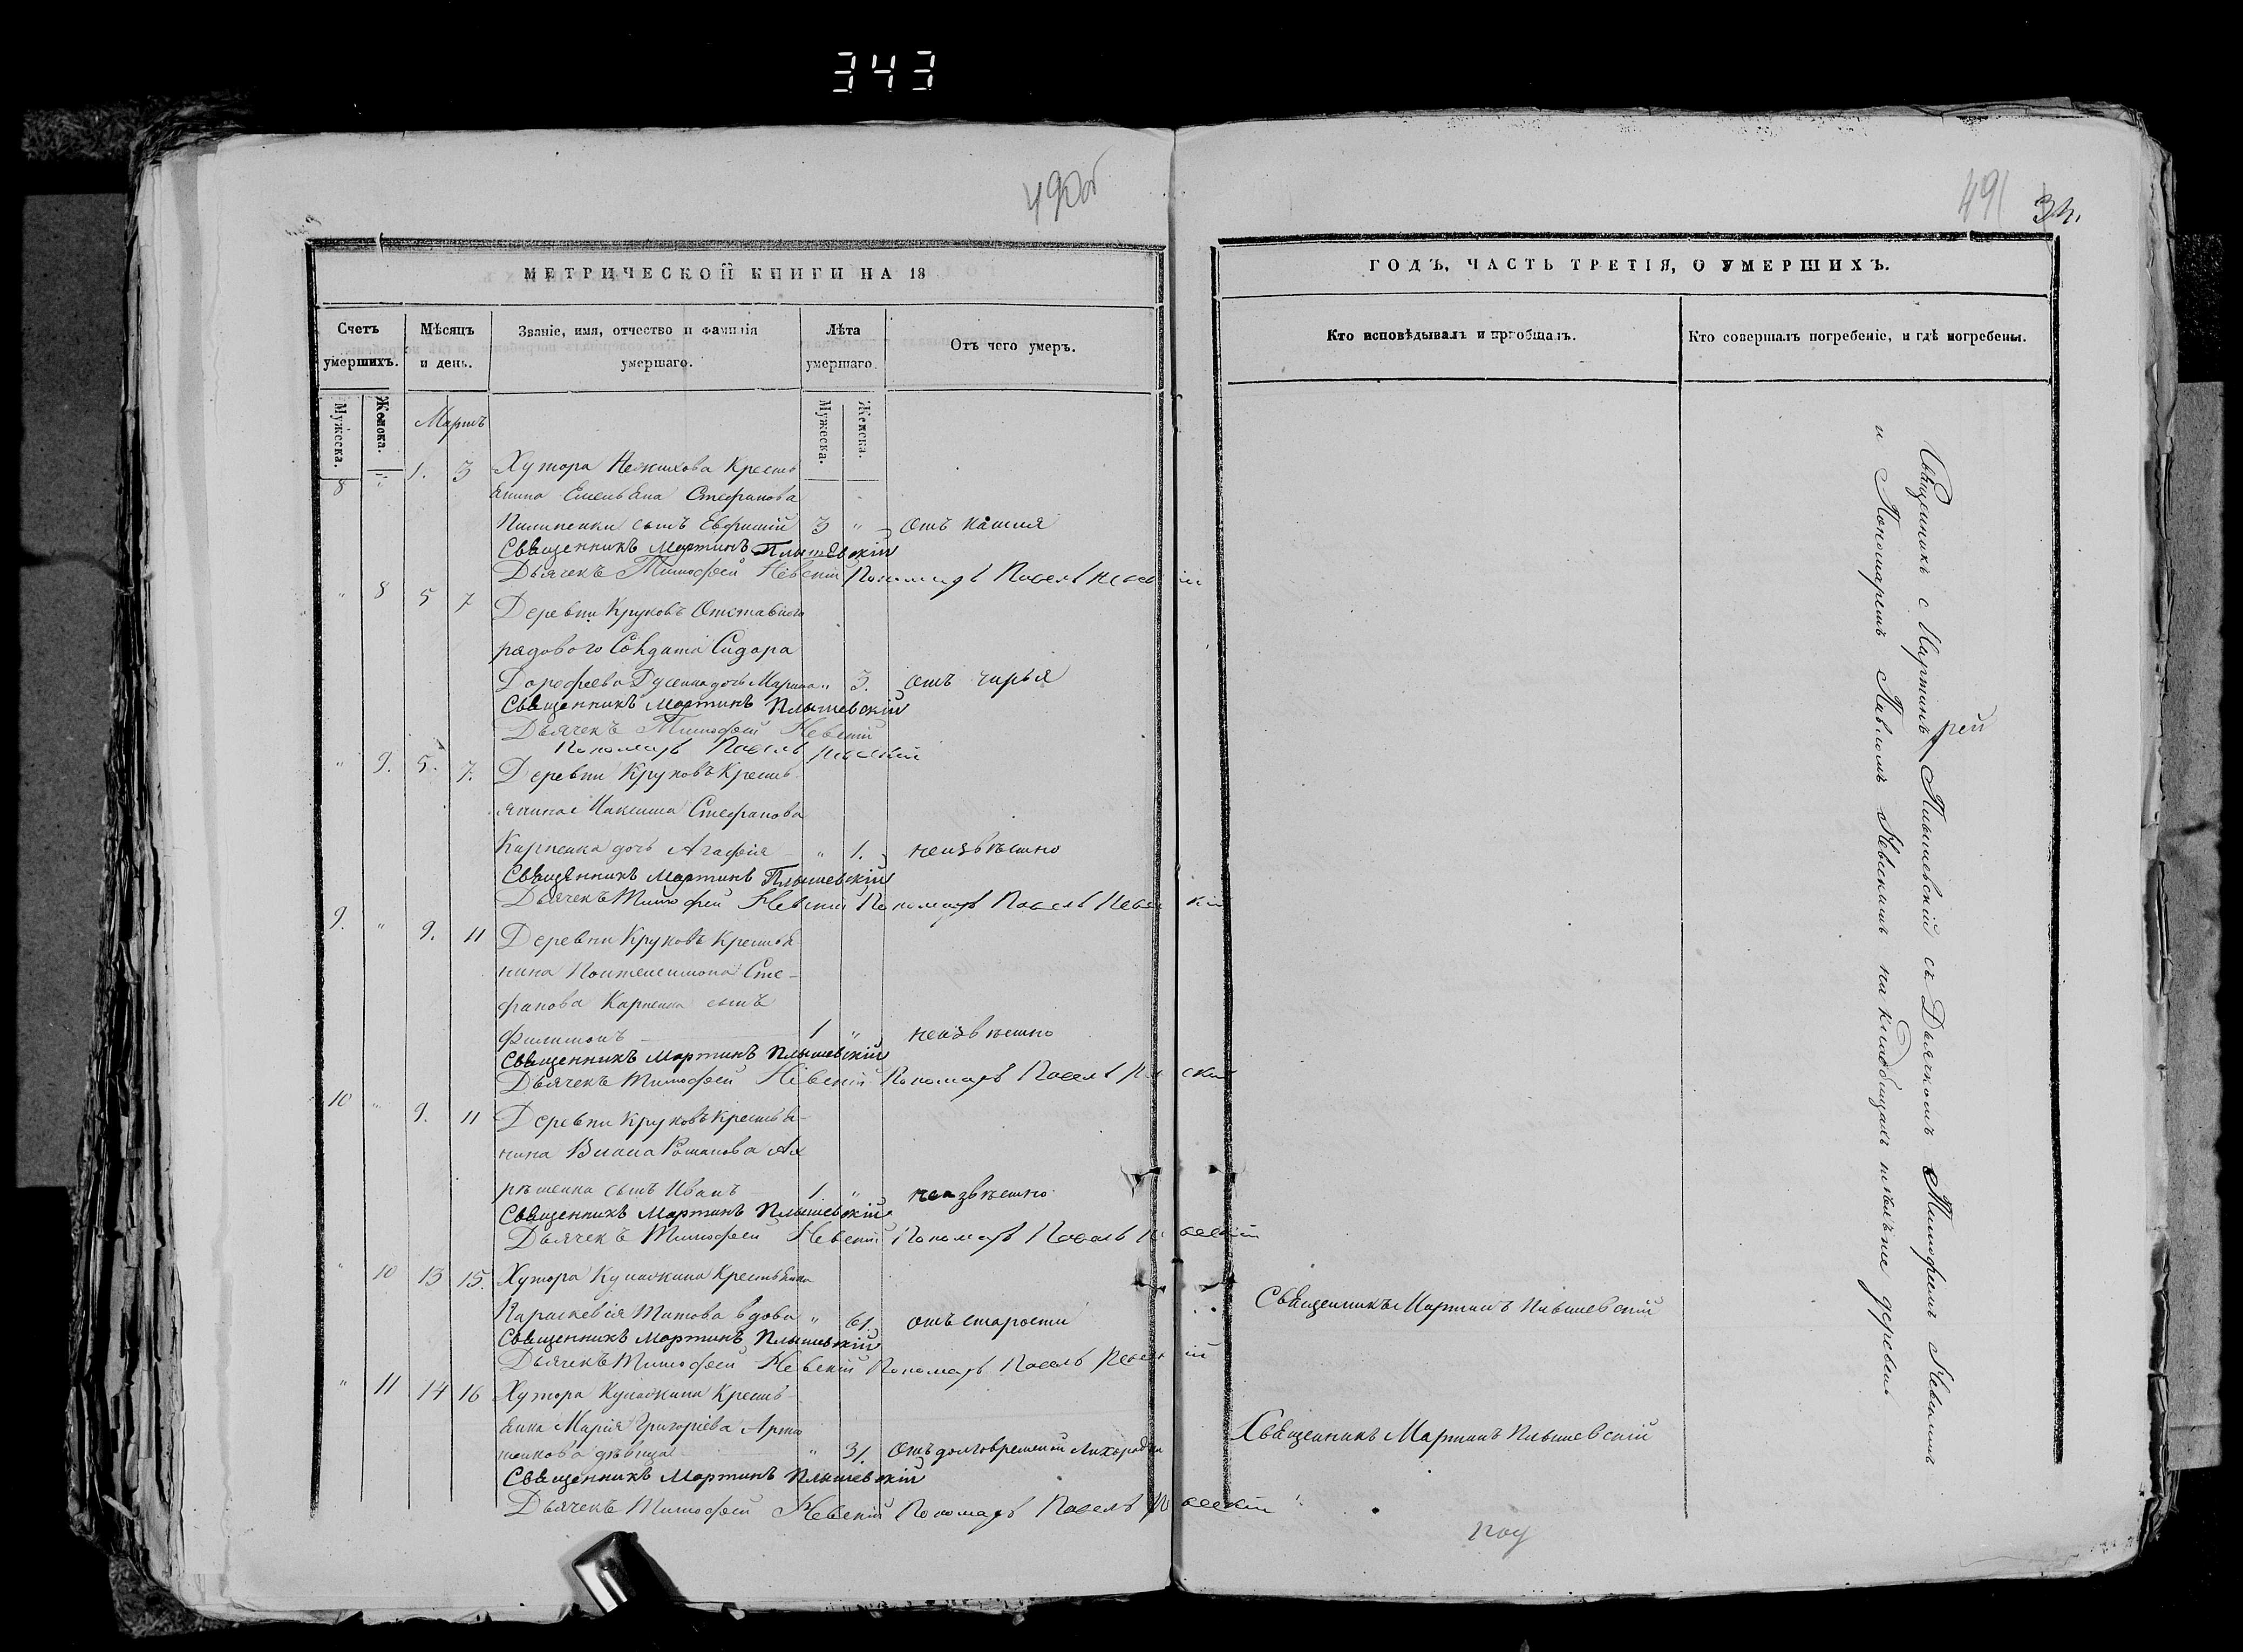 343
490об
МЕТРИЧЕСКОЙ КНИГИ НА 18
Счетъ умершихъ.
Мѣсяцъ и день.
Званіе, имя, отчество и фамилія умершаго.
Лѣта умершаго.
Отъ чего умеръ.
Мужеска. Женска.
Мартъ
Мужеска. Женска.
8 " 1. 3 Хутора Кресть
янина Емельяна Стефанова
Пилипенки сынъ Евфимій 3 " отъ кашля
Священникъ Мартинъ Плышевскій
Дьячекъ Тимофей Невскій Пономарь Павелъ Невскій
" 8 5 7 Деревни Круковъ Отставного
рядового Солдата Сидора
Дорофеева дочь Марина " 3. отъ чирья
Священникъ Мартинъ Плышевскій
Дьячекъ Тимофей Невскій
Пономарь Павелъ Невскій
" 9. 5. 7. Деревни Круковъ Кресть
янина Максима Стефанова
Карпенка дочь Агафія " 1. неизвѣстно
Священникъ Мартинъ Плышевскій
Дьячекъ Тимофей Невскій Пономарь Павелъ Невскій
9. " 9. 11 Деревни Круковъ Крестья
нина Пантелеимона Сте-
фанова Карпенка сынъ
Филимонъ 1 " неизвѣстно
Священникъ Мартинъ Плышевскій
Дьячекъ Тимофей Невскій Пономарь Павелъ Невскій
10 " 9. 11 Деревни Круковъ Крестья-
нина Власа Романова Ан
сынъ Иванъ 1. " неизвѣстно
Священникъ Мартинъ Плышевскій
Дьячекъ Тимофей Невскій Пономарь Павелъ Невскій
" 10 13 15. Хутора Крестьянка
Параскевія Титова вдова " 61. отъ старости
Священникъ Мартинъ Плышевскій
Дьячекъ Тимофей Невскій Пономарь Павелъ Невскій
" 11 14 16 Хутора Кресть-
янка Марія Григоріева
дѣвица " 31. Отъ долговременой Лихорадки
Священникъ Мартинъ Плышевскій
Дьячекъ Тимофей Невскій Пономарь Павелъ Невскій
491 34.
ГОДЪ, ЧАСТЬ ТРЕТІЯ, О УМЕРШИХЪ.
Кто исповѣдывалъ и пріобщалъ.
Кто совершалъ погребеніе, и гдѣ погребены.
Священникъ Мартинъ Плышевскій съ Дьячкомъ Тимофеемъ Невскимъ
и Пономаремъ Павломъ Невскимъ на кладбищахъ деревень
рей
Священникъ Мартинъ Плышевскій
Священникъ Мартинъ Плышевскій